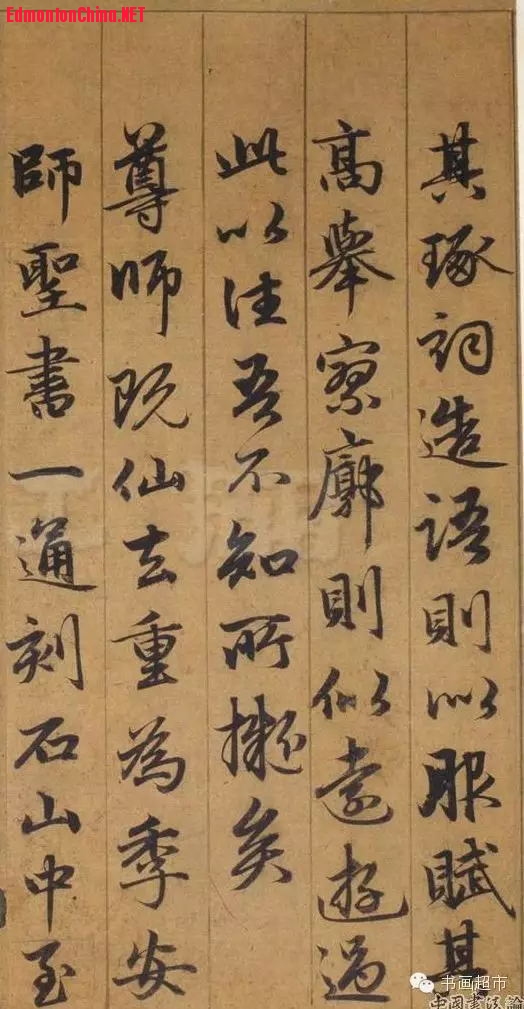 EdmontonChina.NET
其琢詞造語則似服賦其
高舉寥廓則似遠遊過
此以往吾不知所擬矣
尊師既仙去重為季安
師聖書一通刻石山中至
书画超市
中國書法論